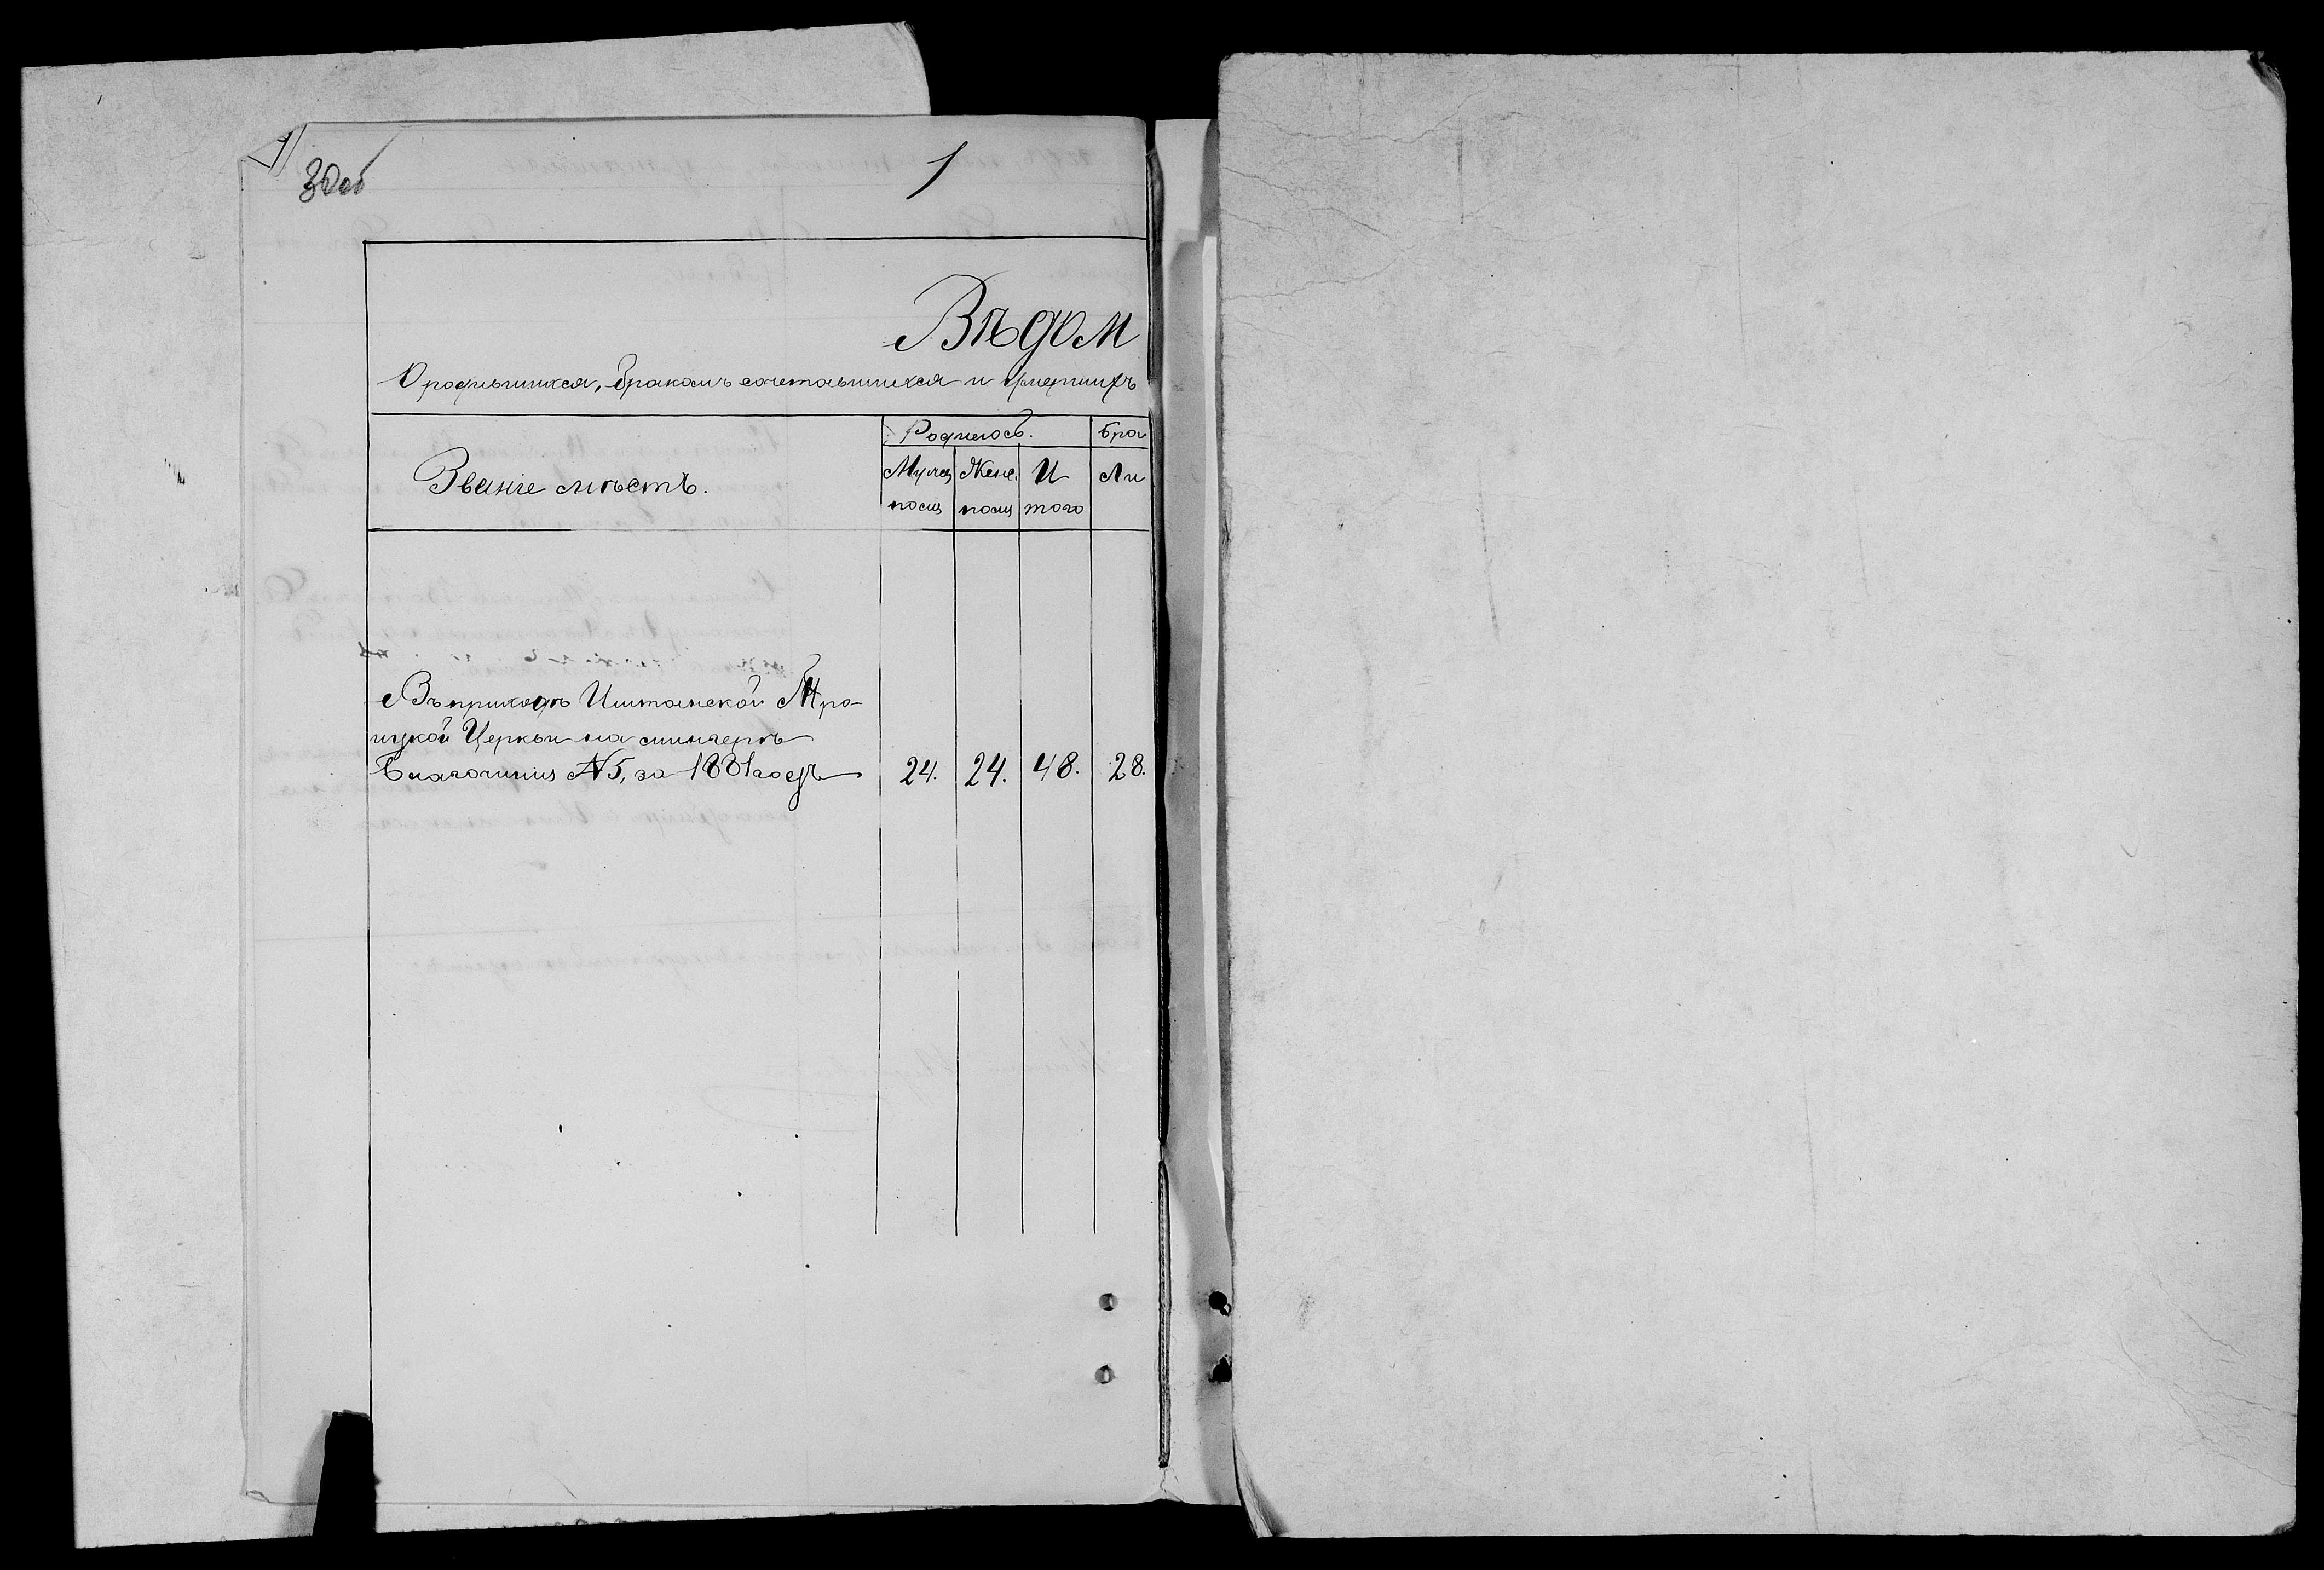 30об
1
Вѣдом
О родившихся, бракомъ сочетавшихся и умершихъ
Званіе мѣстъ.
Родилось.
бра
Мужес
Женс.
И
ли
каго
Въ приходѣ Иштанской Тро
ицкой Церкви на
благочинія №5, за 1881 годъ
24.
24.
48.
28.